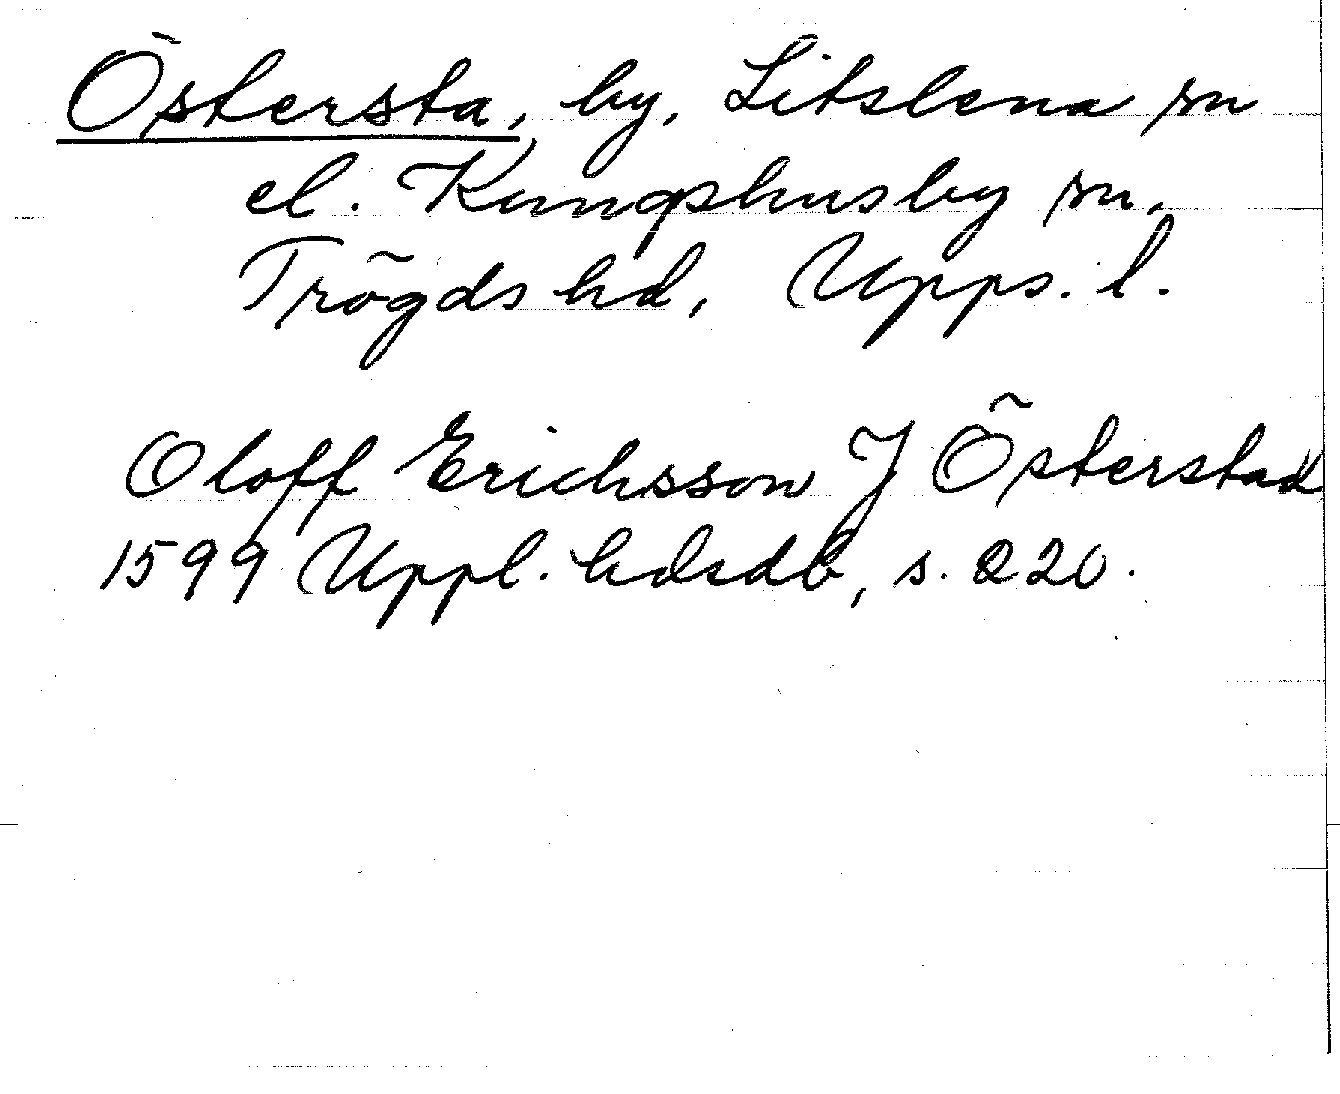 Östersta, by, Litslena sn
el. Kungshusby sn.
Trögds hd, Upps. l.
Oloff Erichsson J Österstad
1599 Uppl. hdsdb, s. 220.